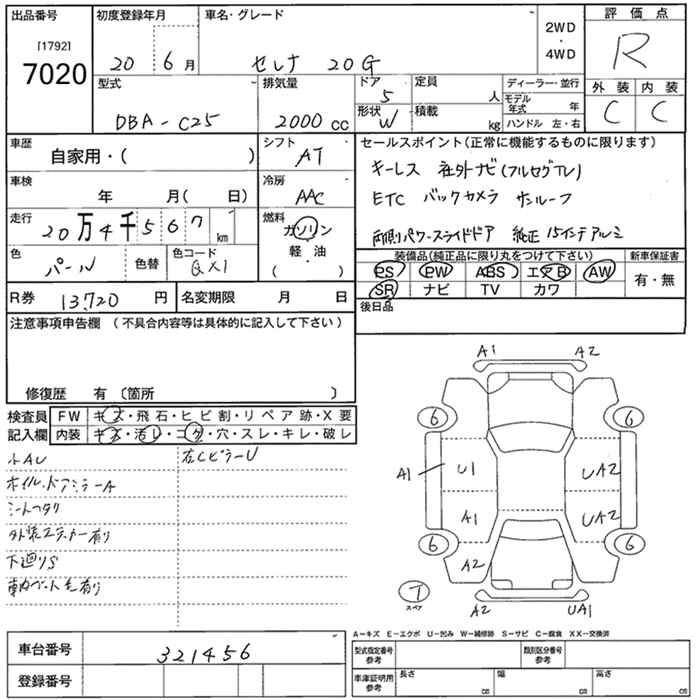 出品番号
[1792]
7020
初度登録年月
20 6 月
車名・グレード
セレナ 20G
2WD
・
4WD
評価点
R
外装 内装
C C
型式
DBA-C25
排気量
2000 cc
ドア
5
形状
W
定員
人
積載
kg
ディーラー・並行
モデル年式 年
ハンドル 左・右
車歴
自家用・( )
シフト
AT
車検
年 月( 日)
冷房
AAC
走行
20万4千567 km
燃料
ガソリン
軽・油
( )
色
パール
色替
色コード
QX1
R券
13,720 円
名変期限 月 日
セールスポイント(正常に機能するものに限ります)
キーレス 社外ナビ(フルセグTV)
ETC バックカメラ サンルーフ
両側パワースライドドア 純正15インチアルミ
装備品(純正品に限り丸をつけて下さい)
PS PW ABS エアB AW
SR ナビ TV カワ
新車保証書
有・無
後日品
注意事項申告欄(不具合内容等は具体的に記入して下さい)
修復歴 有〔箇所 〕
検査員
記入欄
FW キズ・飛石・ヒビ割・リペア跡・X要
内装 キズ・汚レ・コゲ・穴・スレ・キレ・破レ
小AU
左CピラーU
ホイル、ドアミラーA
シートヘタリ
外装ステッカー有り
下廻りS
A1 A2
6 6
A1 U1 UA2
A1 UA2
6 6
A2
T
スペア
A2 UA1
A-キズ E-エクボ U-凹み W-補修跡 S-サビ C-腐食 XX-交換済
車台番号
321456
登録番号
型式指定番号
参考
類別区分番号
参考
車庫証明用
参考
長さ cm
幅 cm
高さ cm